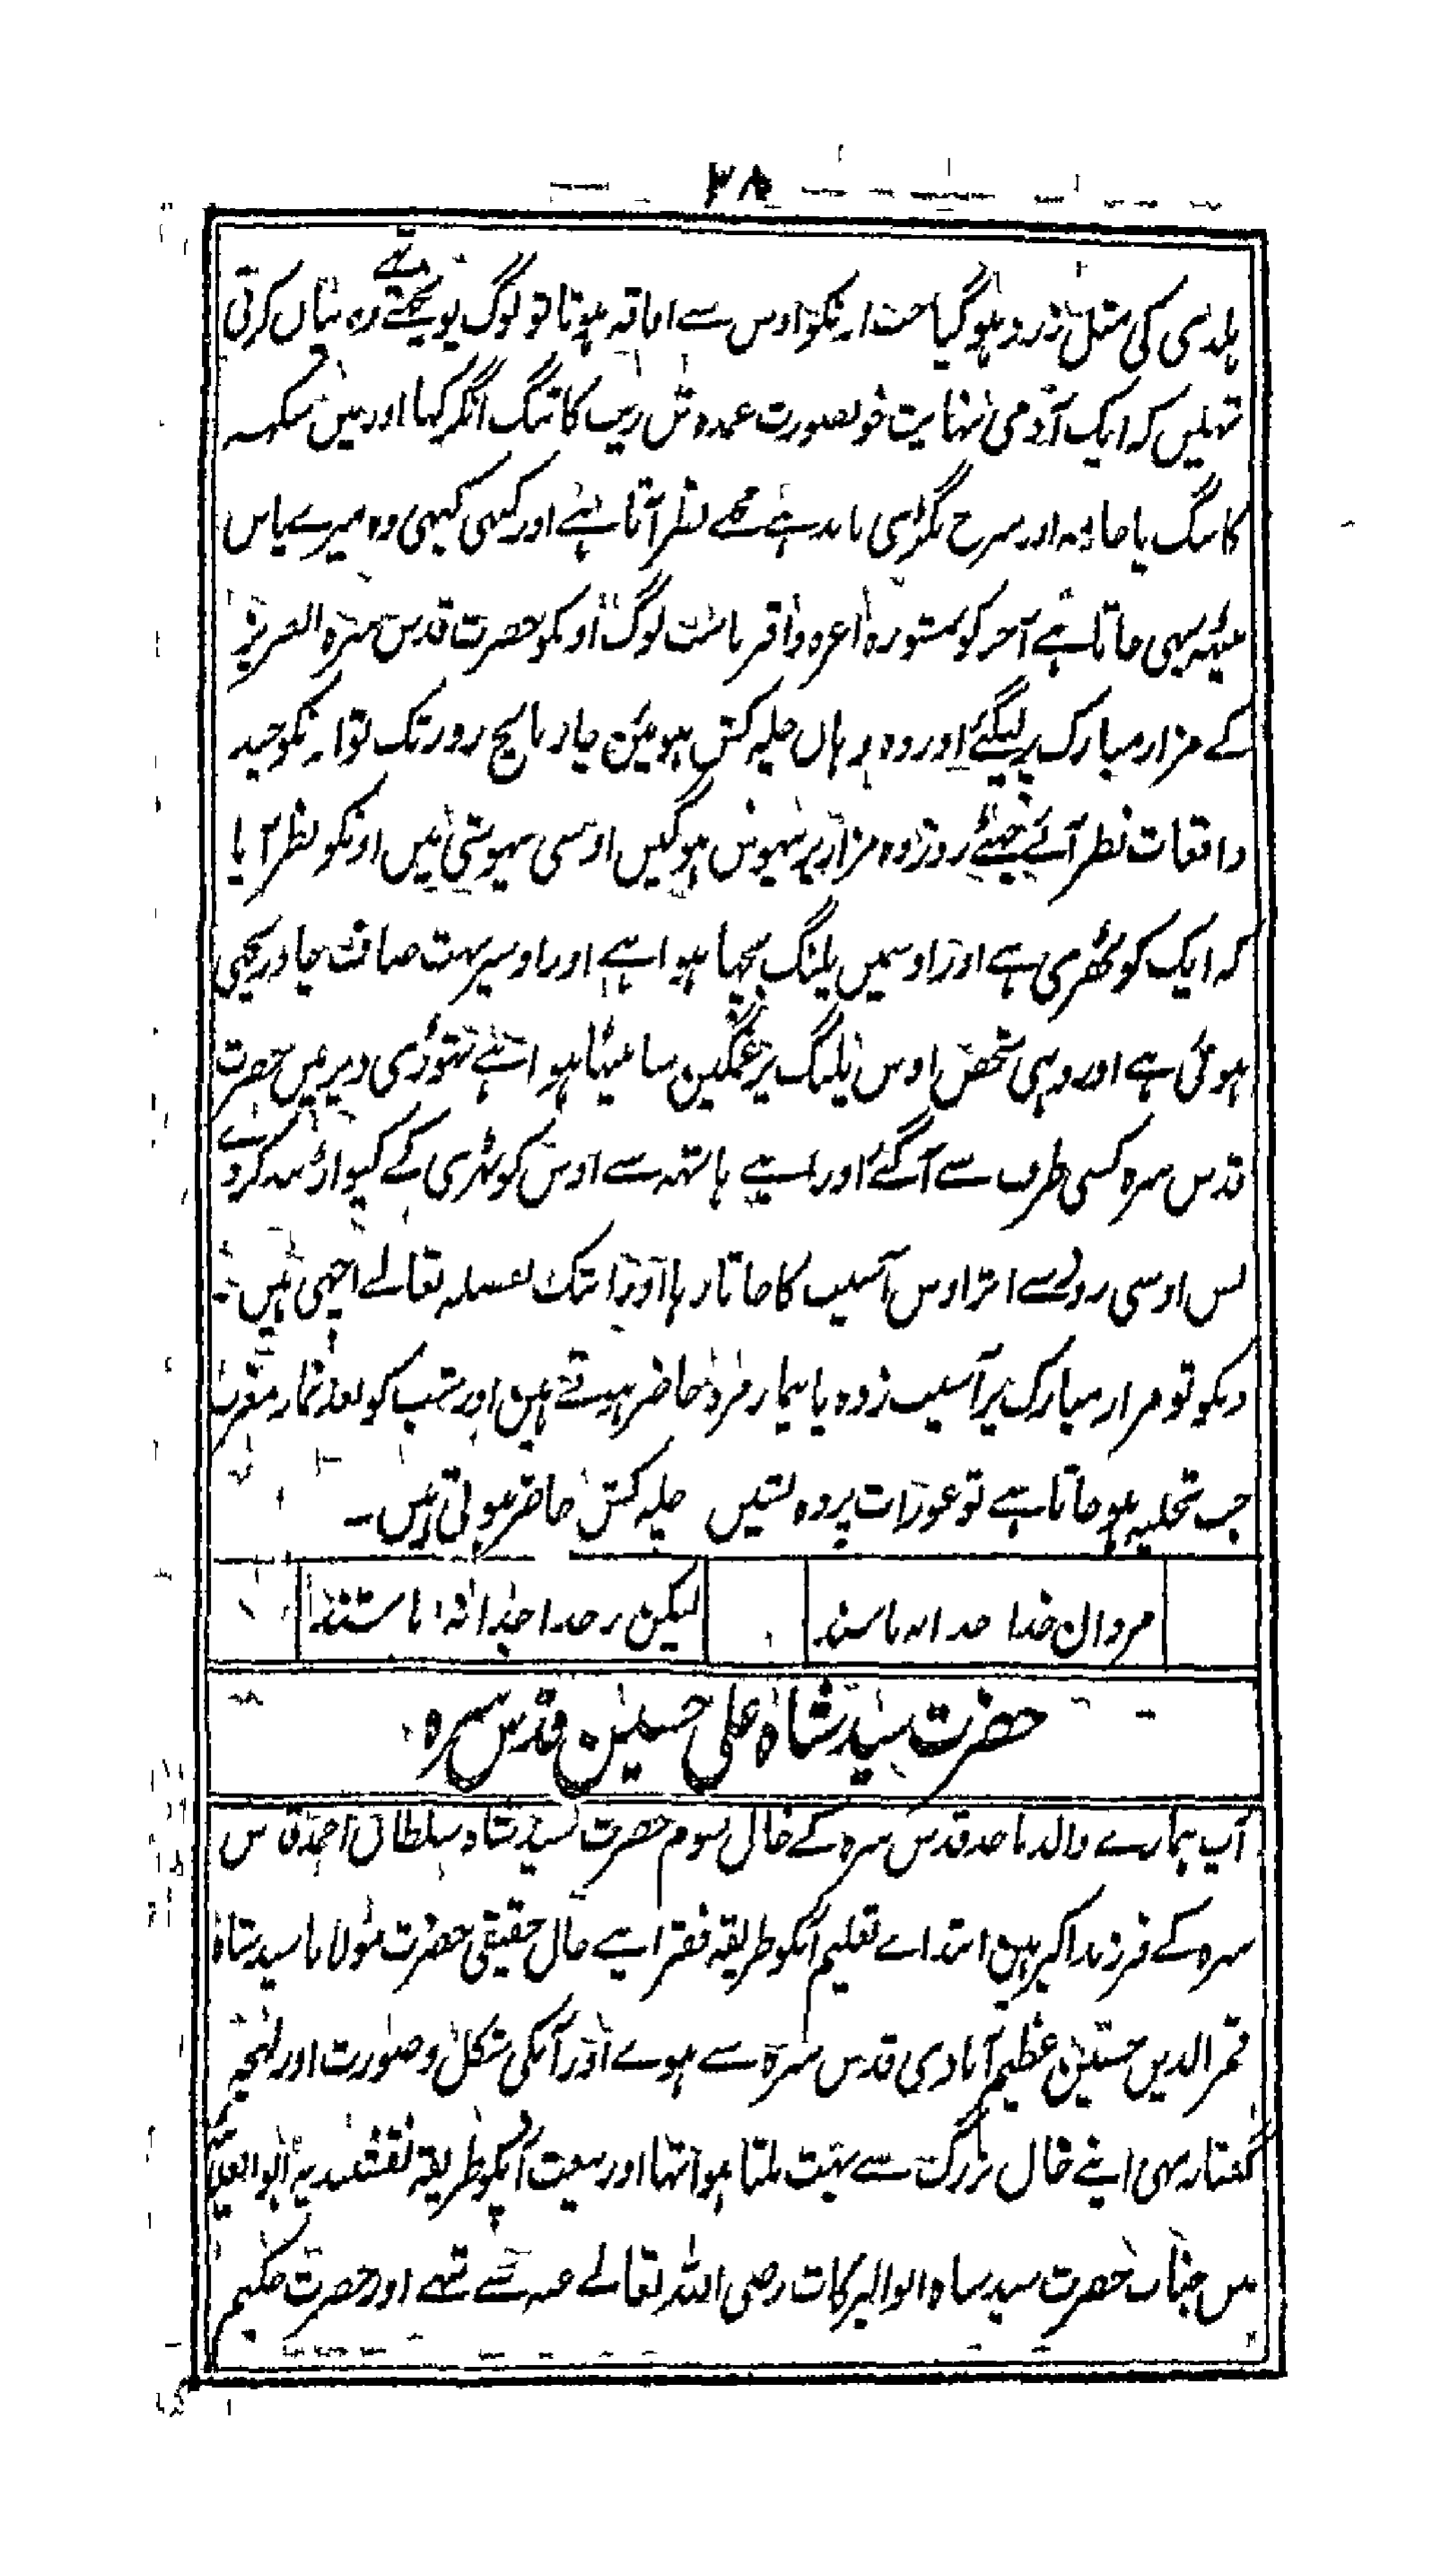 ۳۸
ہلدی کی مثل زرد ہوگیا جب انکو اوس سے افاقہ ہوتا تو لوگ پوچھتے تھے وہ بیاں کرتی
تہیں کہ ایک آدمی نہایت خوبصورت عمدہ تن زیب کا تنگ انگرکہا اور مین سکہہ
کا تنگ پاجامہ اور سرخ پگڑی باندہے مجھے نظر آتا ہے اور کبہی کبہی وہ میرے پاس
بیٹہہ بہی جاتا ہے آخر کو مستورہ اعزہ واقربا سب لوگ اونکو حضرت قدس سرہ العزیز
کے مزار مبارک پر لیگئے اور وہ وہاں چلہ کش ہوئین چار پانچ روز تک تو انکو چند
واقعات نظر آئے چھٹے روز وہ مزار پر بیہوش ہوگیں اوسی بیہوشی میں اونکو نظر آیا
کہ ایک کوٹھری ہے اور اوسمیں پلنگ بچہا ہوا ہے اور اوسپر بہت صاف چادر بچھی
ہوئی ہے اور وہی شخص اوس پلنگ پر غمگین سا بیٹھا ہوا ہے تہوڑی دیر میں حضرت
قدس سرہ کسی طرف سے آگئے اور اپنے ہاتہہ سے اوس کوٹہری کے کیواڑ بند کر دے
بس اوسی روز سے اثر اوس آسیب کا جاتا رہا اور ابتک بفضلہ تعالے اچھی ہیں
دنکو تو مزار مبارک پر آسیب زدہ یا بیمار مرد حاضر ہوتے ہین اور شب کو بعد نماز مغرب
جب تخلیہ ہو جاتا ہے تو عورات پردہ نشیں چلہ کش حاضر ہوتی ہیں۔
مردان خدا خدا نہ باشند لیکن ز خدا جدا نہ باشند
حضرت سید شاہ علی حسین قدس سرہ
آپ ہمارے والد ماجد قدس سرہ کے خال سوم حضرت سید شاہ سلطان احمد قدس
سرہ کے فرزند اکبر ہین ابتداے تعلیم آپکو طریقہ فقر اپنے خال حقیقی حضرت مولانا سید شاہ
قمر الدین حسین عظیم آبادی قدس سرہ سے ہوے اور آپکی شکل و صورت اور لہجہ
گفتار بہی اپنے خال بزرگ سے بہت ملتا ہوا تہا اور بیعت آپکو طریقہ نقشبندیہ ابو العلائیہ
میں جناب حضرت سید شاہ ابوالبرکات رضی اللہ تعالے عنہ سے تھے اور حضرت حکیم